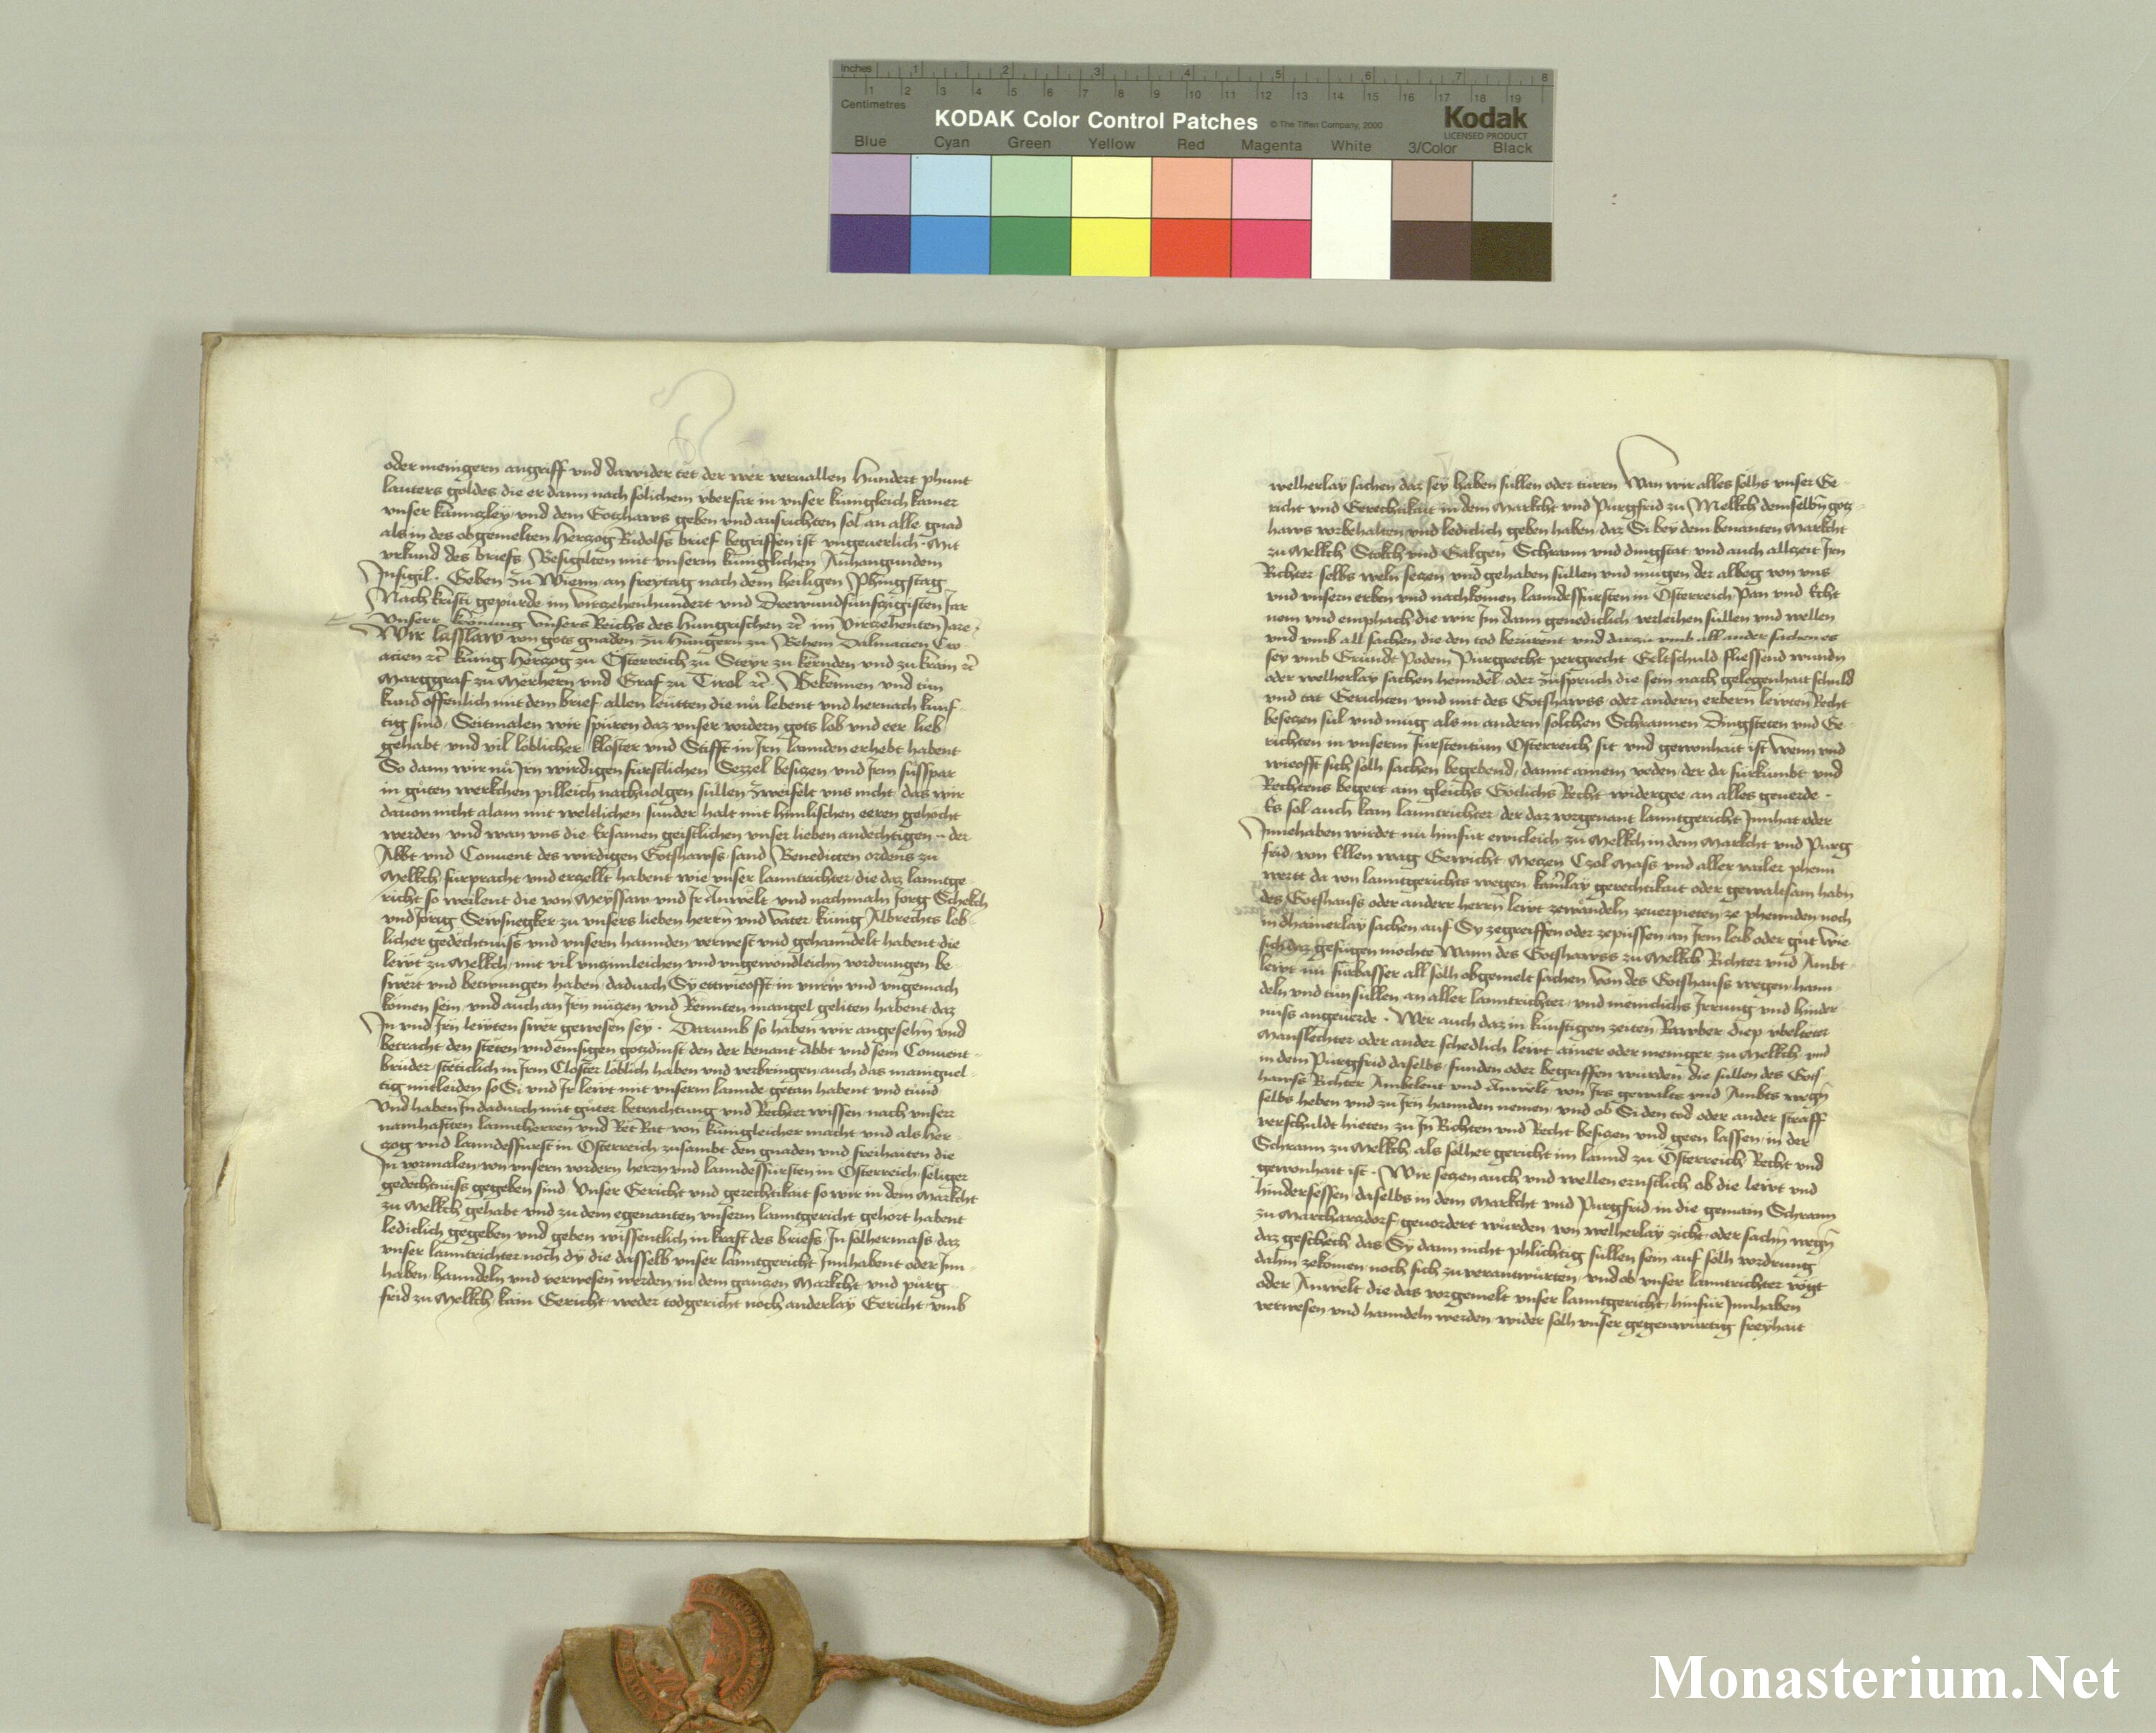 Inches 1 2 3 4 5 6 7 8
Centimetres 1 2 3 4 5 6 7 8 9 10 11 12 13 14 15 16 17 18 19
KODAK Color Control Patches © The Tiffen Company, 2000 Kodak
LICENSED PRODUCT
Blue Cyan Green Yellow Red Magenta White 3/Color Black
oder menigern angriff vnd dawider tet der wer veruallen Hundert phunt
lauters goldes die er dann nach solichem vbersar in vnser kunigleich kamer
vnser kannczley vnd dem Gotzhaws geben vnd ausrichten sol an alle gnad
als in des obgemelten Herczog Rudolfs brief begriffen ist vngeuerlich Mit
vrkund des briefs Besigilten mit vnserm kuniglichen Anhangundem
Insigil. Geben zu Wienn an freytag nach dem heiligen Phingstag
Nach kristi gepurde im virczehenhundert vnd Drewundfunfczigisten Jar
Vnserr kronung vnsers Reichs des hungrischen etc im virczehenten Jare
Wir lasslaw von gots gnaden zu Hungern zu Behem Dalmacien Cro
acien etc kunig Herczog zu Osterreich zu Steyr zu kernden vnd zu krain etc
Marggraf zu Merhern vnd Graf zu Tirol etc. Bekennen vnd tun
kund offenlich mit dem brief allen leutten die nu lebent vnd hernach kunf
tig sind Seitmalen wir spuren daz vnser vordern gots lob vnd eer lieb
gehabt vnd vil loblicher kloster vnd Stifft in Irn lannden erhebt habent
So dann wir nu Irn wirdigen furstlichen Sezzel besiczen vnd Irm fusspar
in guten werkchen pilleich nachuolgen sullen zweifelt vns nicht das wir
dauon nicht alain mit weltlichen sunder halt mit himlischen eeren gehocht
werden vnd wan vns die Ersamen geistlichen vnser lieben andechtigen .. der
Abbt vnd Conuent des wirdigen Gotshawss sand Benedicten ordens zu
Melkch furpracht vnd erczellt habent wie vnser lanntrichter die daz lanntge
richt so weilent die von Meyssaw vnd Ir Anwelt vnd nachmaln Jorg Schekch
vnd Jorig Sewsnegker zu vnsers lieben herrn vnd vater kunig Albrechts lob
licher gedechtnuss vnd vnsern hannden verwest vnd gehanndelt habent die
lewt zu Melkch mit vil vnzimleichen vnd vngewondleichn vordrungen be
swert vnd betwungen haben dadurch Sy ettwieofft in vnrw vnd vngemach
komen sein vnd auch an Irn nuczen vnd Rennten mangel geliten habent daz
In vnd Irn lewten swer gewesen sey. Darumb so haben wir angesehn vnd
betracht den steten vnd emsigen gotzdinst den der benant Abbt vnd sein Conuent
bruder steticlich in Irm Closter loblich haben vnd verbringen auch das maniguel
tig mitleiden so Si vnd Ir lewt mit vnserm lannde getan habent vnd tund
Vnd haben In dadurch mit guter betrachtung vnd Rechter wissen nach vnserr
namhafften lanntherren vnd Ret Rat von kunigleicher macht vnd als her
czog vnd lanndesfurst in Osterreich zusambt den gnaden vnd freihaiten die
In vormalen von vnsern vordern herrn vnd lanndesfursten in Osterreich seliger
gedechtnuss gegeben sind Vnser Gericht vnd gerechtikait so wir in dem Markcht
zu Melkch gehabt vnd zu dem egenanten vnserm lanntgericht gehort habent
lediclich gegeben vnd geben wissentlich in kraft des briefs In solhermass daz
vnser lanntrichter noch dy die dasselb vnser lanntgericht Innhabent oder Inn
haben hanndeln vnd verwesen werden in dem ganczen Markcht vnd purg
frid zu Melkch kain Gericht weder todgericht noch anderlay Gericht vmb
welherlay sachen daz sey haben sullen oder turrn Wan wir alles solhs vnser Ge
richt vnd Gerechtikait in dem Markcht vnd Purgfrid zu Melkch demselbn gotz
haws vorbehalten vnd lediclich geben haben daz Si bey dem benanten Markcht
zu Melkch Stokch vnd Galgen Schrann vnd dingstat vnd auch allzeit Irn
Richter selbs weln seczen vnd gehaben sullen vnd mugen der albeg von vns
vnd vnsern erben vnd nachkomen lanndesfursten in Osterreich Pan vnd Echt
nem vnd emphach die wir Im dann genediclich verleihen sullen vnd wellen
vnd vmb all sachen die den tod berurent vnd darzu vmb all ander sachen es
sey vmb Grundt Podem Purgrecht pergrecht Geltschuld fliessend wundn
oder welherlay sachen henndel oder zuspruch die sein nach gelegenhait schuld
vnd tat Gerichten vnd mit des Gotshawss oder andern erbern lewten Recht
beseczen sul vnd mug als in andern solchen Schrannen Dingsteten vnd Ge
richten in vnserm furstentum Osterreich sit vnd gewonhait ist wenn vnd
wieofft sich solh sachen begebend damit ainem yeden der da furkumbt vnd
Rechtens begert ain gleichs Gotlichs Recht widergee an alles geuerde.
Es sol auch kain lanntrichter der daz vorgenant lanntgericht Innhat oder
Innehaben wirdet nu hinfur ewicleich zu Melkch in dem Markcht vnd Purg
frid von Ellen wag Gewicht Meczen Czol Mass vnd aller vailer phenn
wertt da von lanntgerichts wegen kainerlay gerechtikait oder gewaltsam habn
des Gotshauss oder anderr herrn lewt zewandeln zeuerpieten ze phennden noch
in dhainerlay sachen auf Sy zegreiffen oder zepussen an Irm leib oder gut wie
sich daz gefugen mochte Wann des Gotshawss zu Melkch Richter vnd Ambt
lewt nu furbasser all solh obgemelt sachen von des Gotshauss wegen hann
deln vnd tun sullen an aller lanntrichter vnd meniclichs Irrung vnd hinder
nuss angeuerde. Wer auch daz in kunftigen zeiten Rawber diep vbelteter
Manslechter oder ander schedlich lewt ainer oder meniger zu Melkch vnd
in dem Purgfrid daselbs funden oder begriffen wurden die sullen des Gots
hawss Richter Ambtleut vnd Anwelt von Irs gewalts vnd Ambts wegn
selbs heben vnd zu Irn hannden nemen vnd ob Si den tod oder ander straff
verschuldt hieten zu In Richten vnd Recht besiczen vnd geen lassen in der
Schrann zu Melkch als solher gericht im lannd zu Osterreich Recht vnd
gewonhait ist. Wir seczen auch vnd wellen ernstlich ob die lewt vnd
hindersessen daselbs in dem Markcht vnd Purgfrid in die gemain Schrann
zu Marcharczdorf geuordert wurden von welherlay zicht oder sachn wegn
daz geschech das Sy dann nicht phlichtig sullen sein auf solh vordrung
dahin zekomen noch sich zuuerantwurten vnd ob vnser lanntrichter vogt
oder Anwelt die das vorgemelt vnser lanntgericht hinfur Innhaben
verwesen vnd hanndeln werden wider solh vnser gegenwurtig freyhait
Monasterium.Net